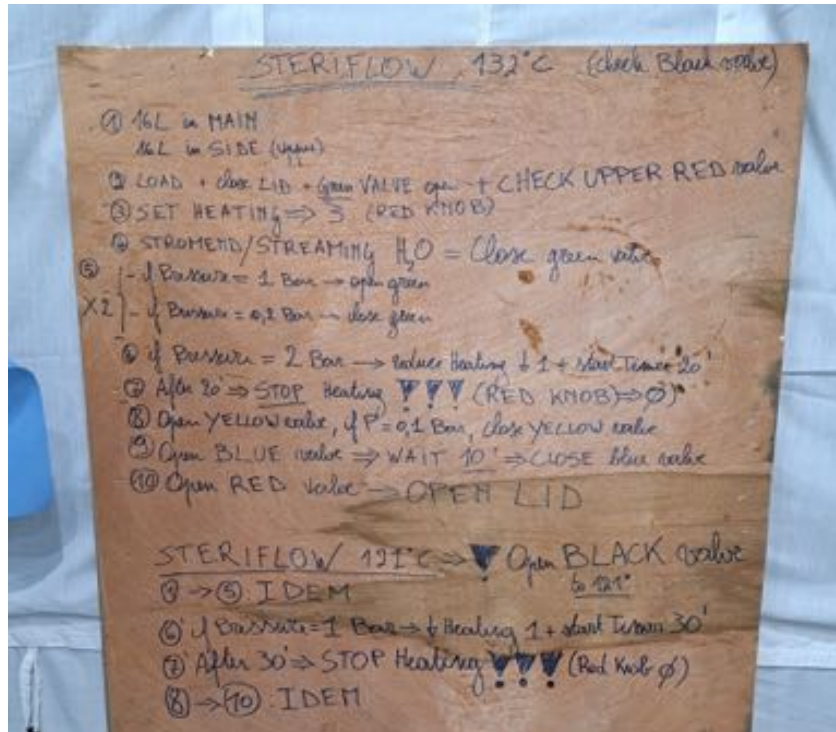 STERIFLOW 132°C (check Black valve)
① 16L in MAIN
16L in SIDE (upper)
② LOAD + close LID + Green VALVE open + CHECK UPPER RED valve
③ SET HEATING ⇒ 3 (RED KNOB)
④ STROMEND/STREAMING H₂O = Close green valve
⑤ - if Pressure = 1 Bar → open green
X2 - if Pressure = 0,2 Bar → close green
⑥ if Pressure = 2 Bar → reduce Heating ↓ 1 + start Timer 20'
⑦ After 20' ⇒ STOP Heating !!! (RED KNOB ⇒ Ø)
⑧ Open YELLOW valve, if P = 0,1 Bar, close YELLOW valve
⑨ Open BLUE valve ⇒ WAIT 10' ⇒ CLOSE blue valve
⑩ Open RED valve → OPEN LID
STERIFLOW 121°C ⇒ ! Open BLACK valve
to 121°
① → ⑤: IDEM
⑥ if Pressure = 1 Bar → ↓ Heating 1 + start Timer 30'
⑦ After 30' ⇒ STOP Heating !!! (Red Knob Ø)
⑧ → ⑩: IDEM